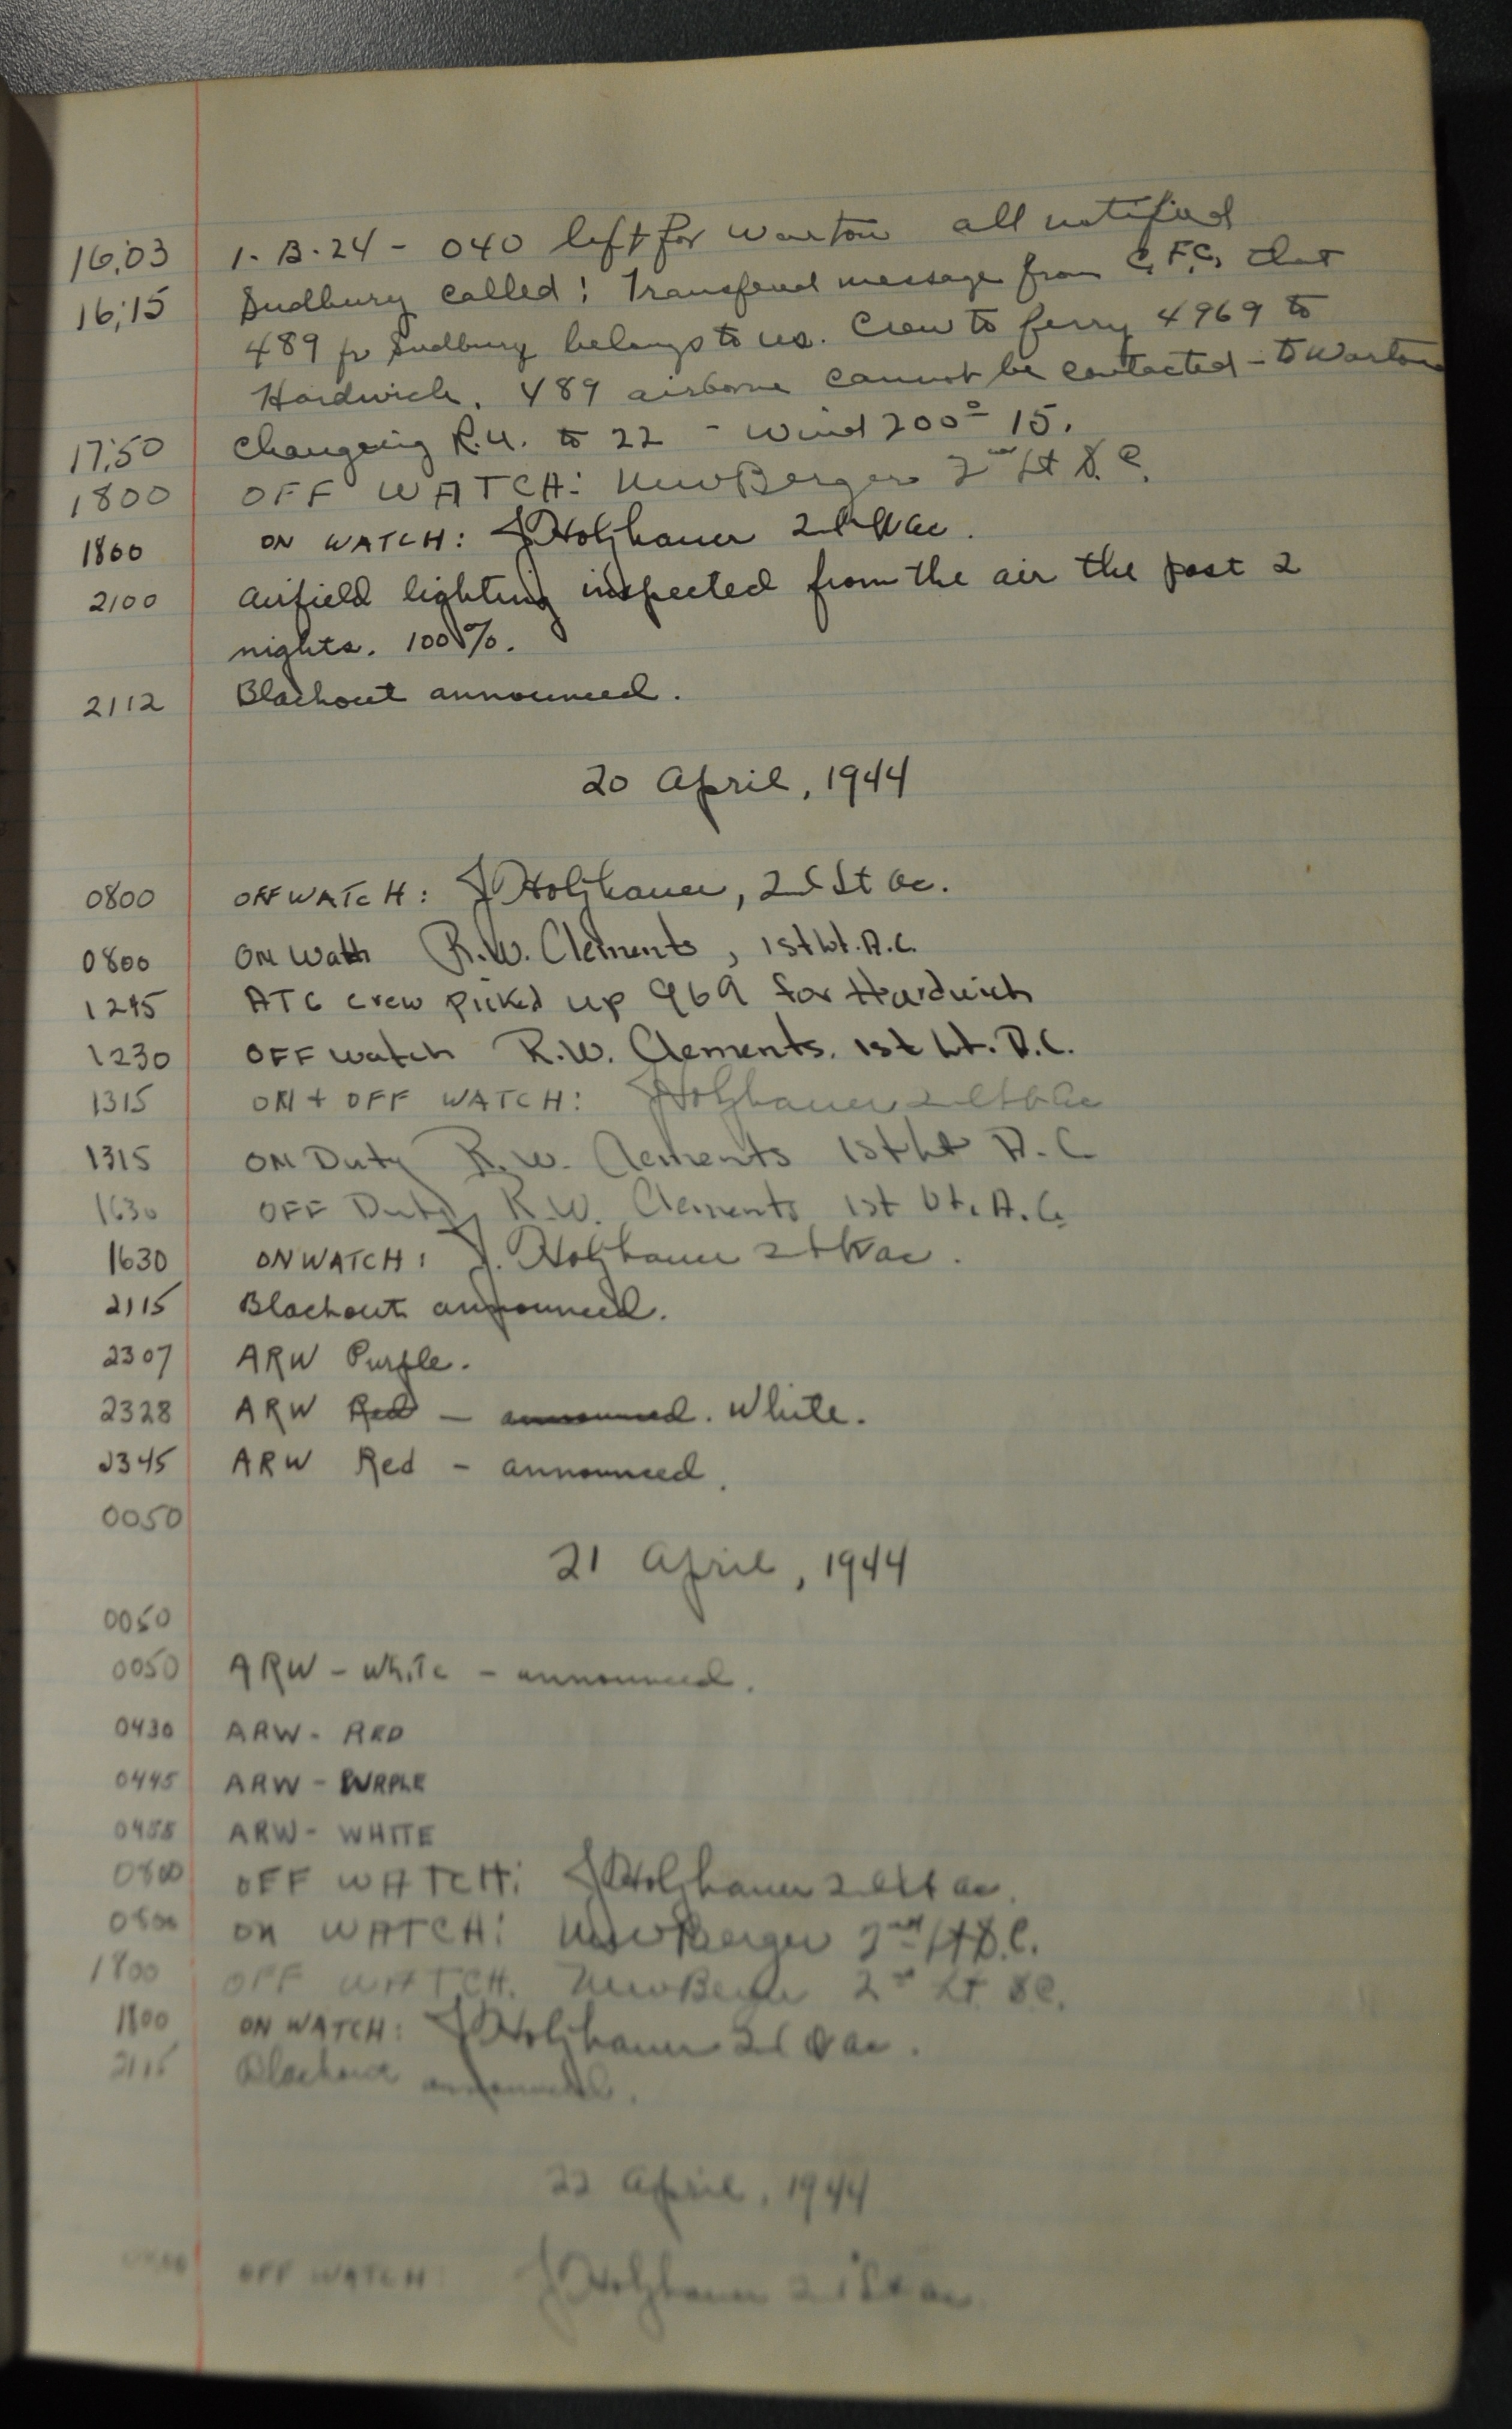 16:03 1. B.24 - 040 left for Warton all notified
16:15 Sudbury called: Transferred message from C.F.C. that
489 fr Sudbury belongs to us. Crew to ferry 4969 to
Hardwick. 489 airborne cannot be contacted - to Warton
17:50 Changing R.U. to 22 - Wind 200° 15.
1800 OFF WATCH: 2nd Lt
1800 ON WATCH: J Holzhauer
2100 Airfield lighting inspected from the air the past 2
nights. 100%.
2112 Blackout announced.
20 April, 1944
0800 OFF WATCH: J Holzhauer, 2d Lt ac.
0800 ON Watch R.W. Clements, 1st Lt. A.C.
1245 ATC crew picked up 969 for Hardwich
1230 OFF watch R.W. Clements. 1st Lt. A.C.
1315 ON + OFF WATCH: J Holzhauer
1315 ON Duty R.W. Clements 1st Lt A.C
1630 OFF Duty R.W. Clements 1st Lt. A.C.
1630 ON WATCH: J. Holzhauer
2115 Blackout announced.
2307 ARW Purple.
2328 ARW Red - announced. White.
2345 ARW Red - announced.
0050
21 April, 1944
0050
0050 ARW - White - announced.
0430 ARW - RED
0445 ARW - PURPLE
0455 ARW - WHITE
0800 OFF WATCH: J Holzhauer
0800 ON WATCH: 2nd Lt
1800 OFF WATCH. 2nd Lt
1800 ON WATCH: J Holzhauer
2115 Blackout announced.
22 April, 1944
OFF WATCH J Holzhauer